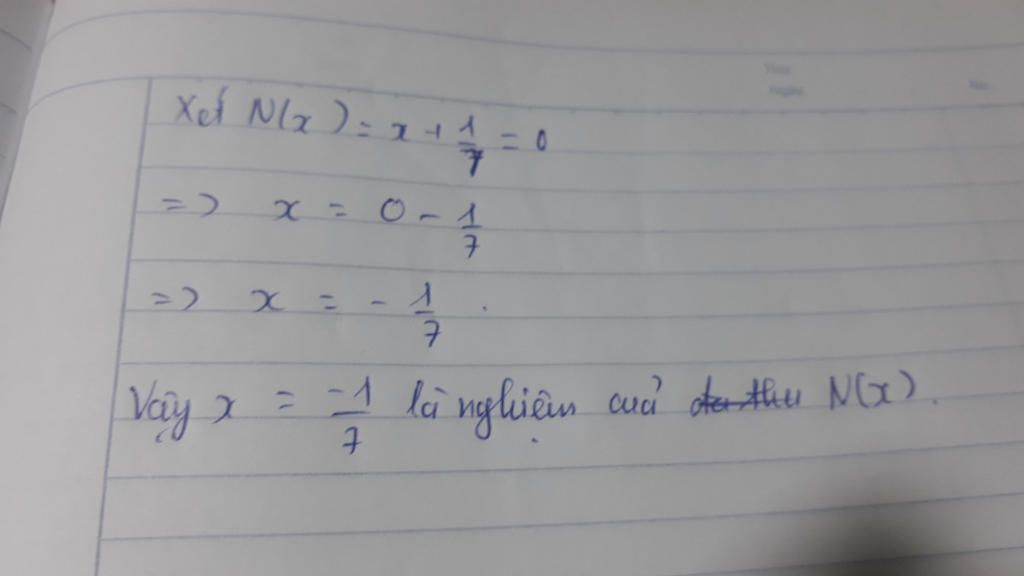 Xét N(x) = x + 1/7 = 0
=> x = 0 - 1/7
=> x = - 1/7 .
Vậy x = -1/7 là nghiệm của N(x).